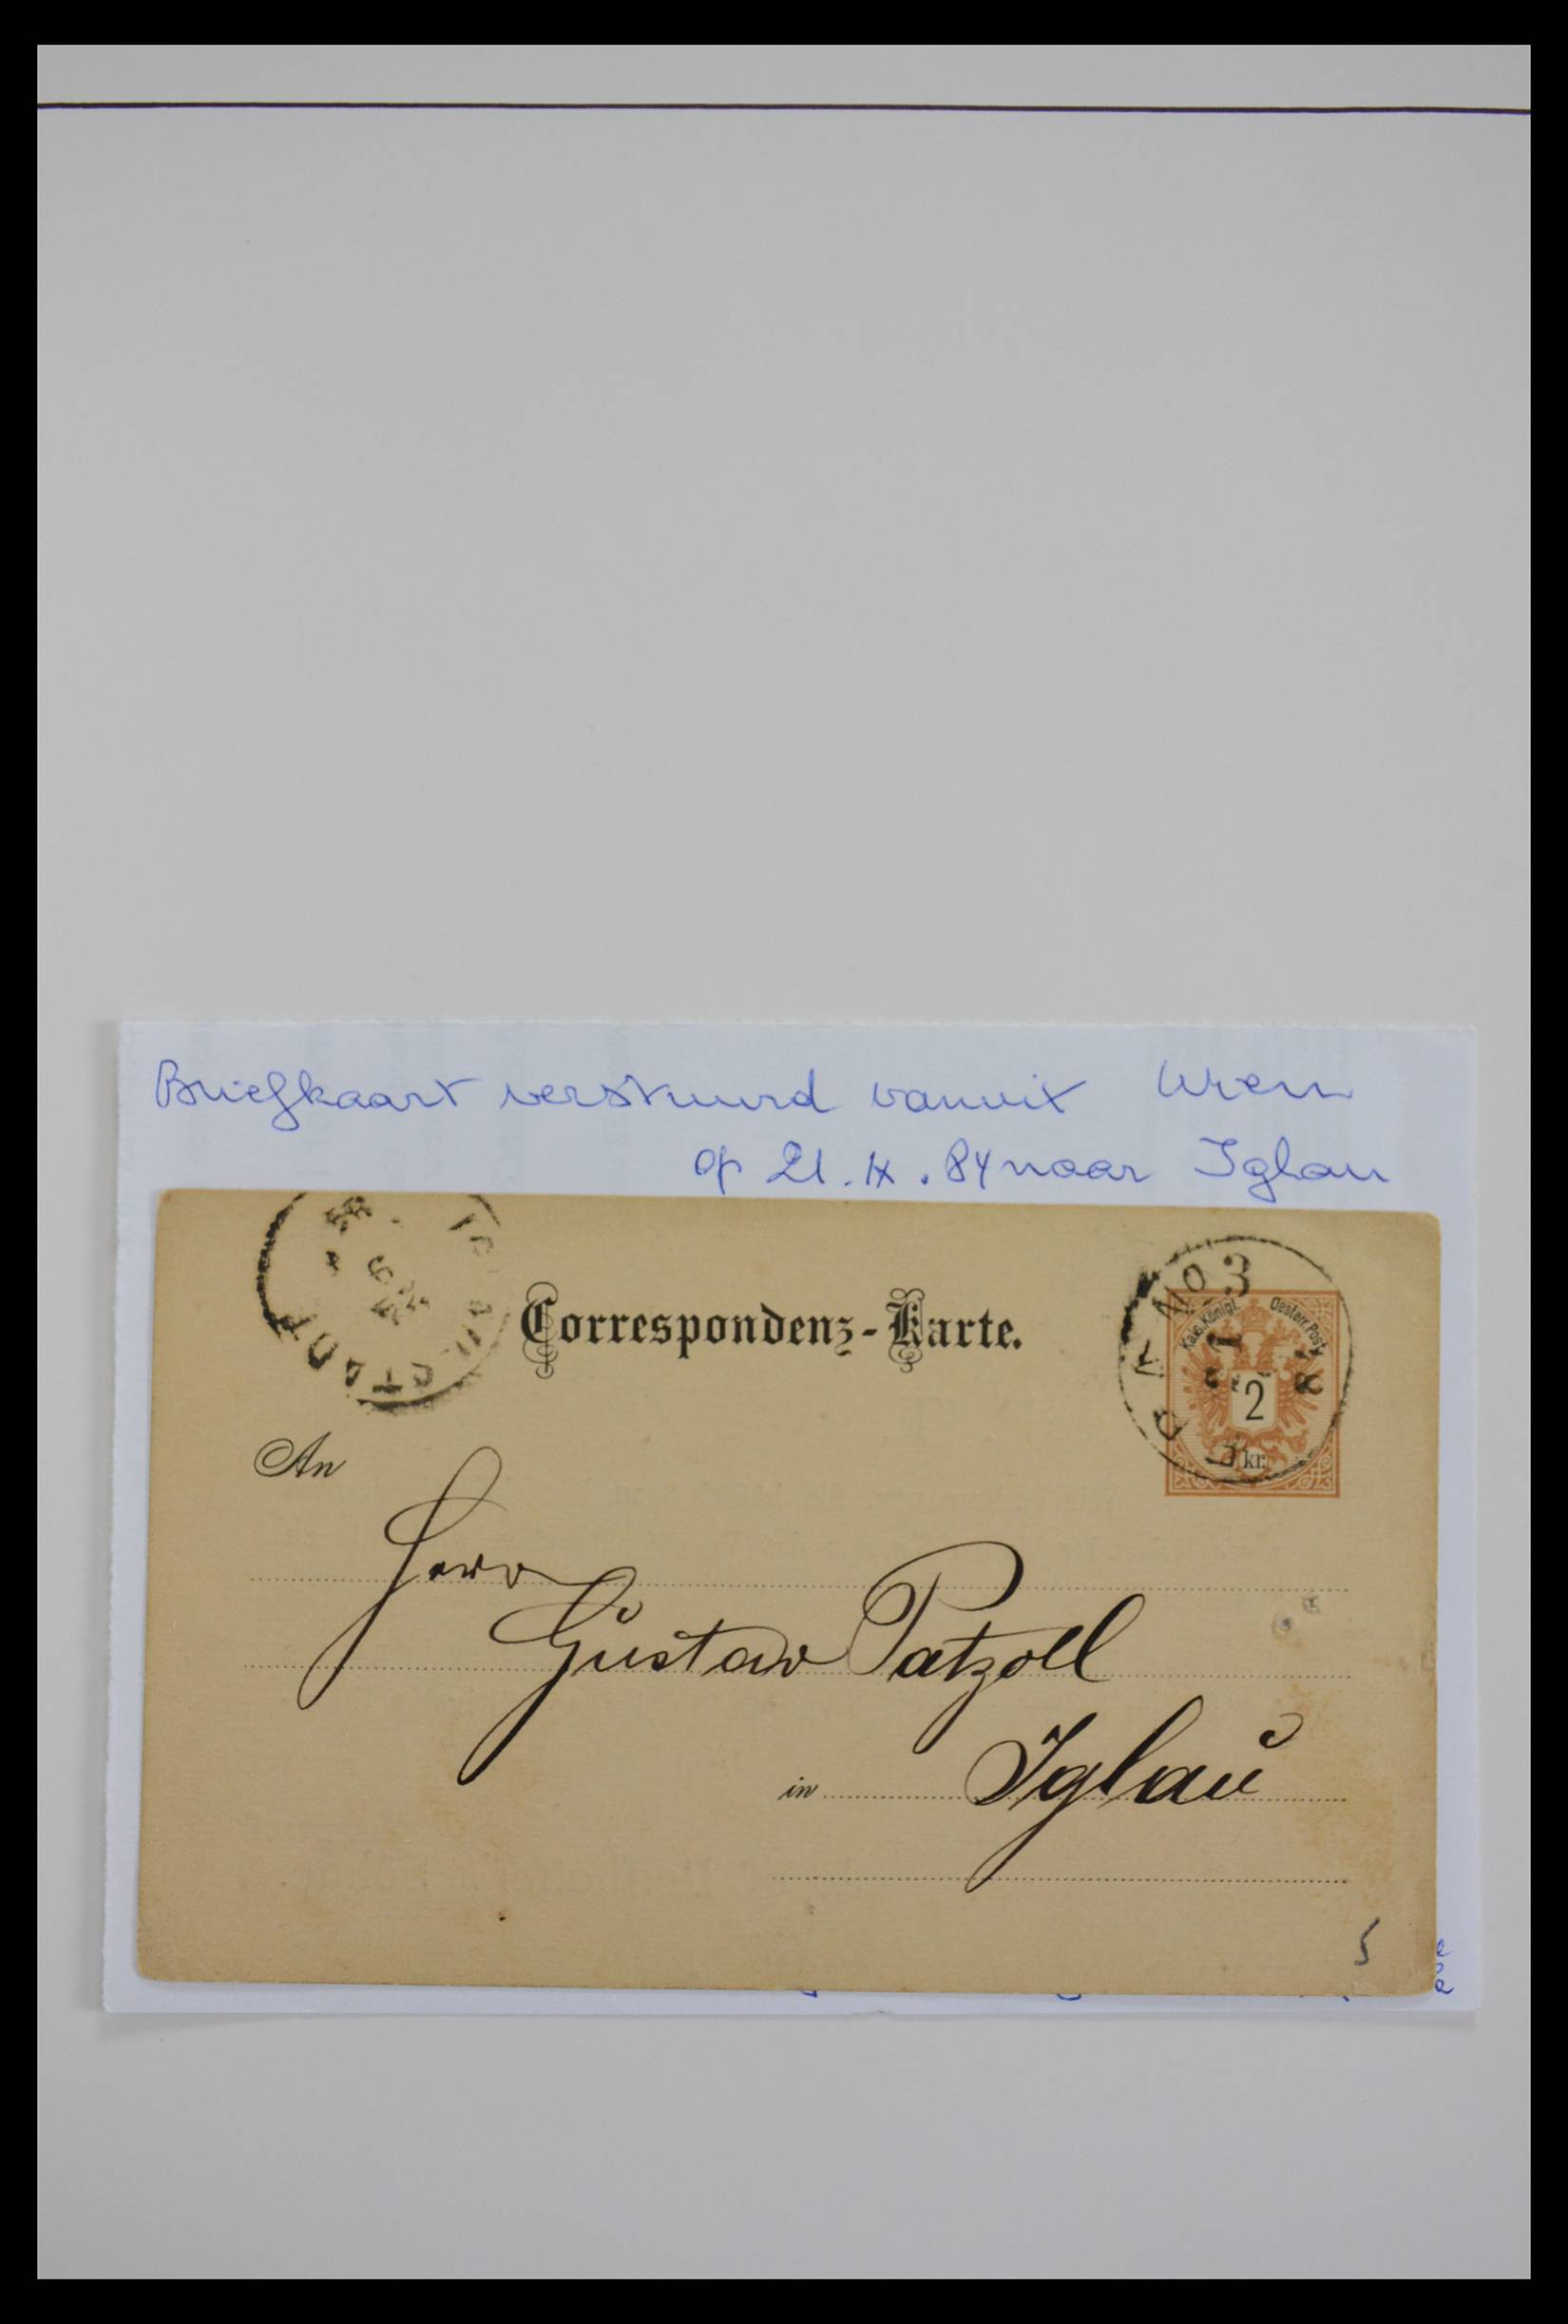 Briefkaart verstuurd vanuit Wien
op 21.IX.84 naar Iglau
Correspondenz-Karte.
No 3
Kais. Königl. Oesterr. Post
2
kr.
An
Herrn
Gustav Patzoll
in Iglau
5